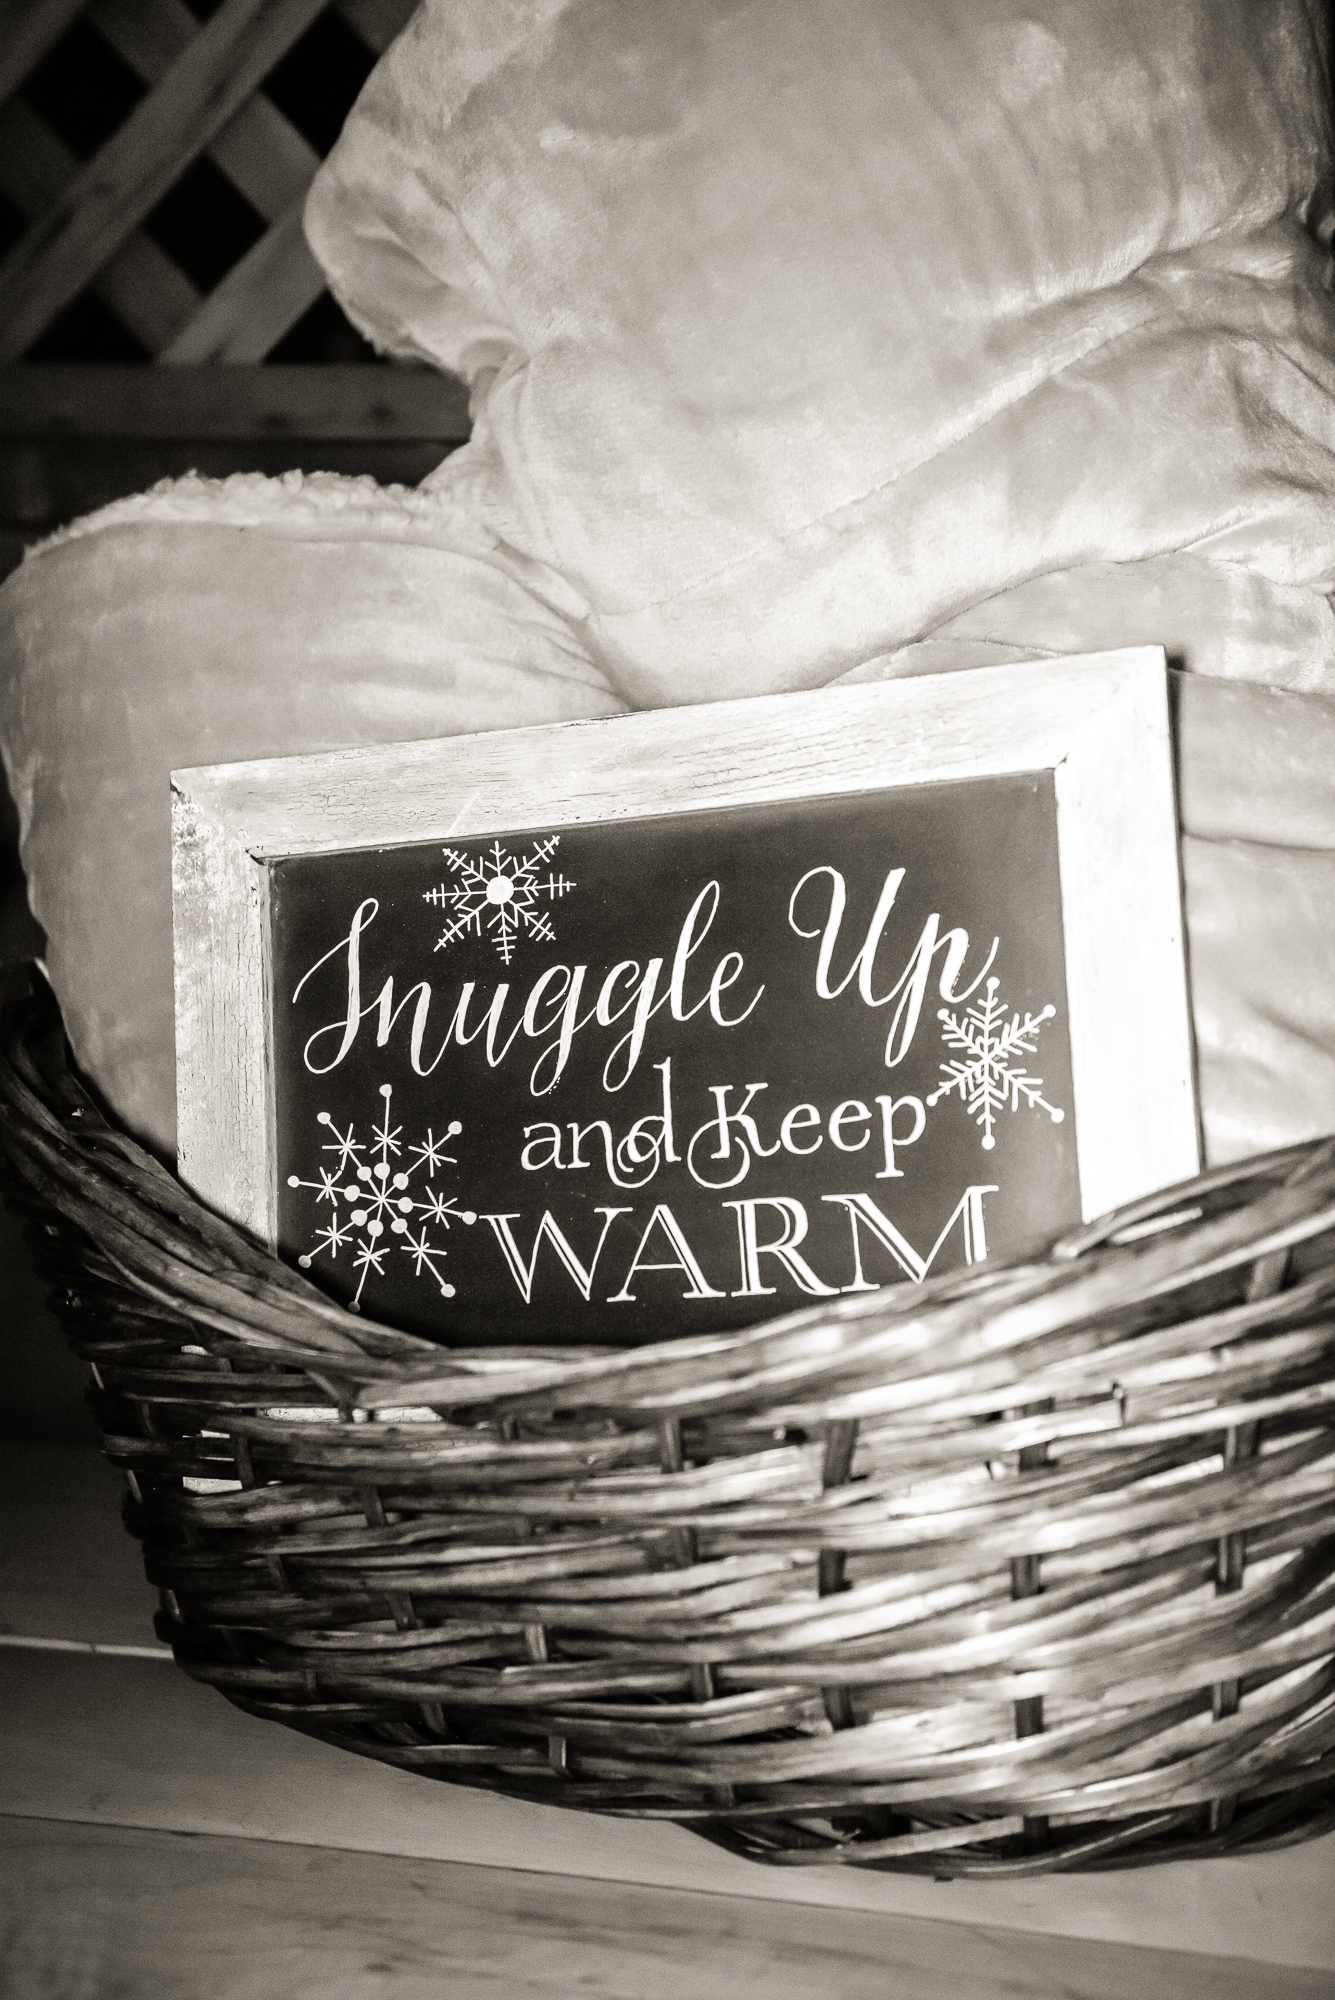 Snuggle Up
and Keep
WARM